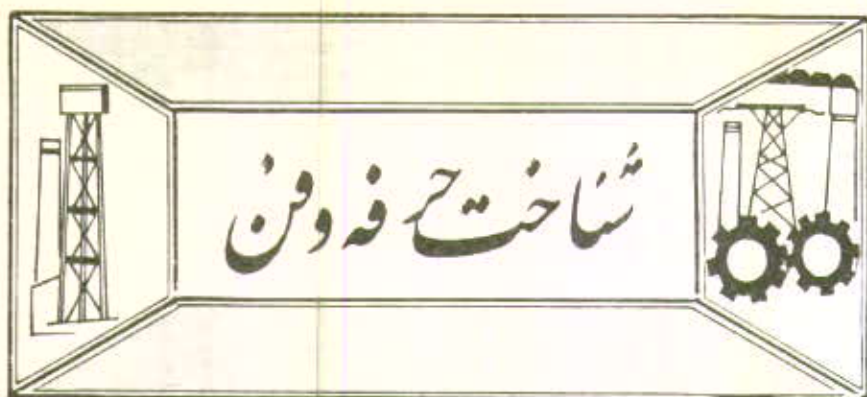 شناخت حرفه و فن